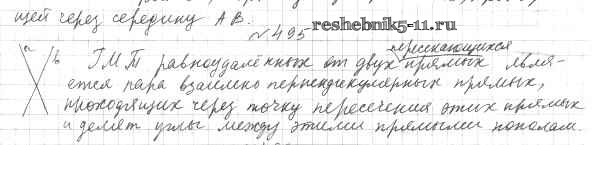 щей через середину АВ.
№495
reshebnik5-11.ru
a b
ГМТ равноудалённых от двух пересекающихся прямых явля-
ется пара взаимно перпендикулярных прямых,
проходящих через точку пересечения этих прямых
и делят углы между этими прямыми пополам.